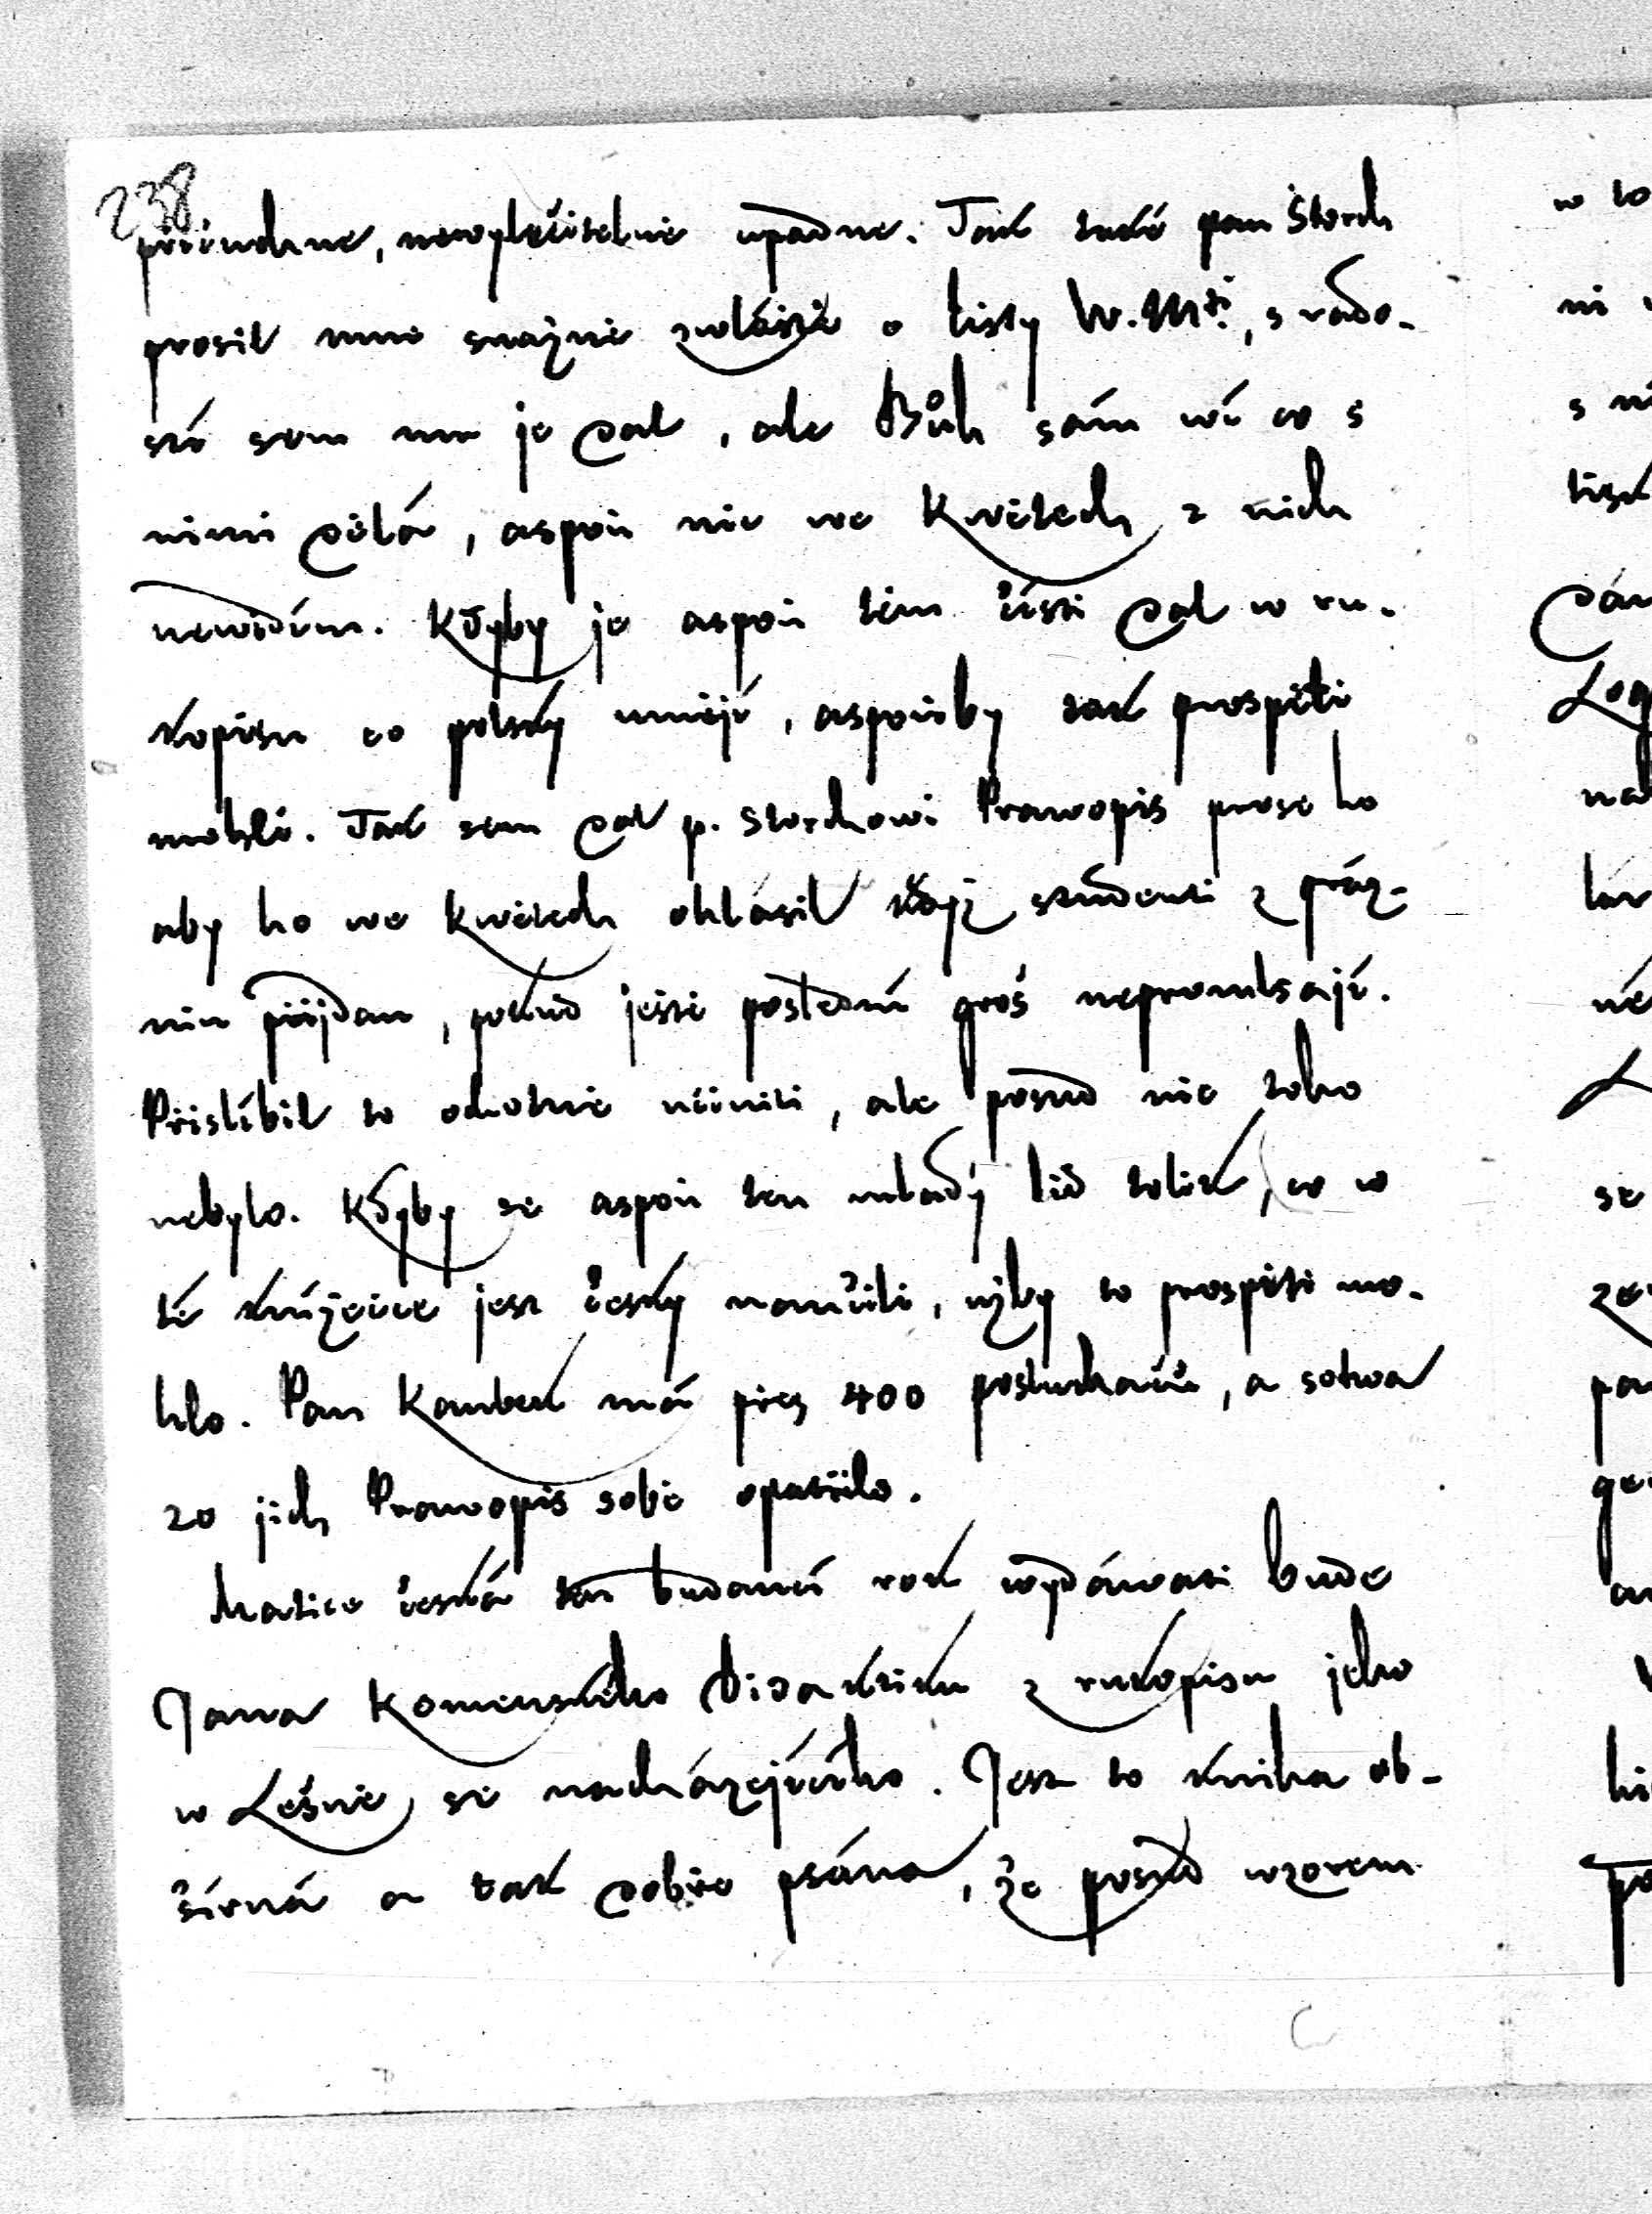 238
přičuchne, newyléčitelně upadne. Tak také pan Štorch
prosil mne snažně zwláště o listy W. Mti, s rado-
stí sem mu je dal, ale Bůh sám wí co s
nimi dělá, aspoň nic we Kwětech z nich
newidím. Kdyby je aspoň těm čísti dal w ru-
kopisu co polsky umějí, aspoňby tak prospěti
mohli. Tak sem dal p. Storchowi Prawopis prose ho
aby ho we Kwětech ohlásil když studenti z práz-
nin přijdau, pokud ješte poslední groš nepromlsají.
Přislíbil to ochotně učiniti, ale posud nic toho
nebylo. Kdyby se aspoň ten mladý lid tolik, co w
té knížečce jest česky naučili, ujžby to prospěti mo-
hlo. Pan Kaubek má přes 400 posluchačů, a sotwa
20 jich Prawopis sobě opatřilo.
Matice česká ten budaucí rok wydáwati bude
Jana Komenského Didaktiku z rukopisu jeho
w Lešně se nacházejícího. Jest to kniha ob-
šírná a tak dobře psána, že posud wzorem
w to
ni
s
tisk
Log
na
né
se
po
ge
hi